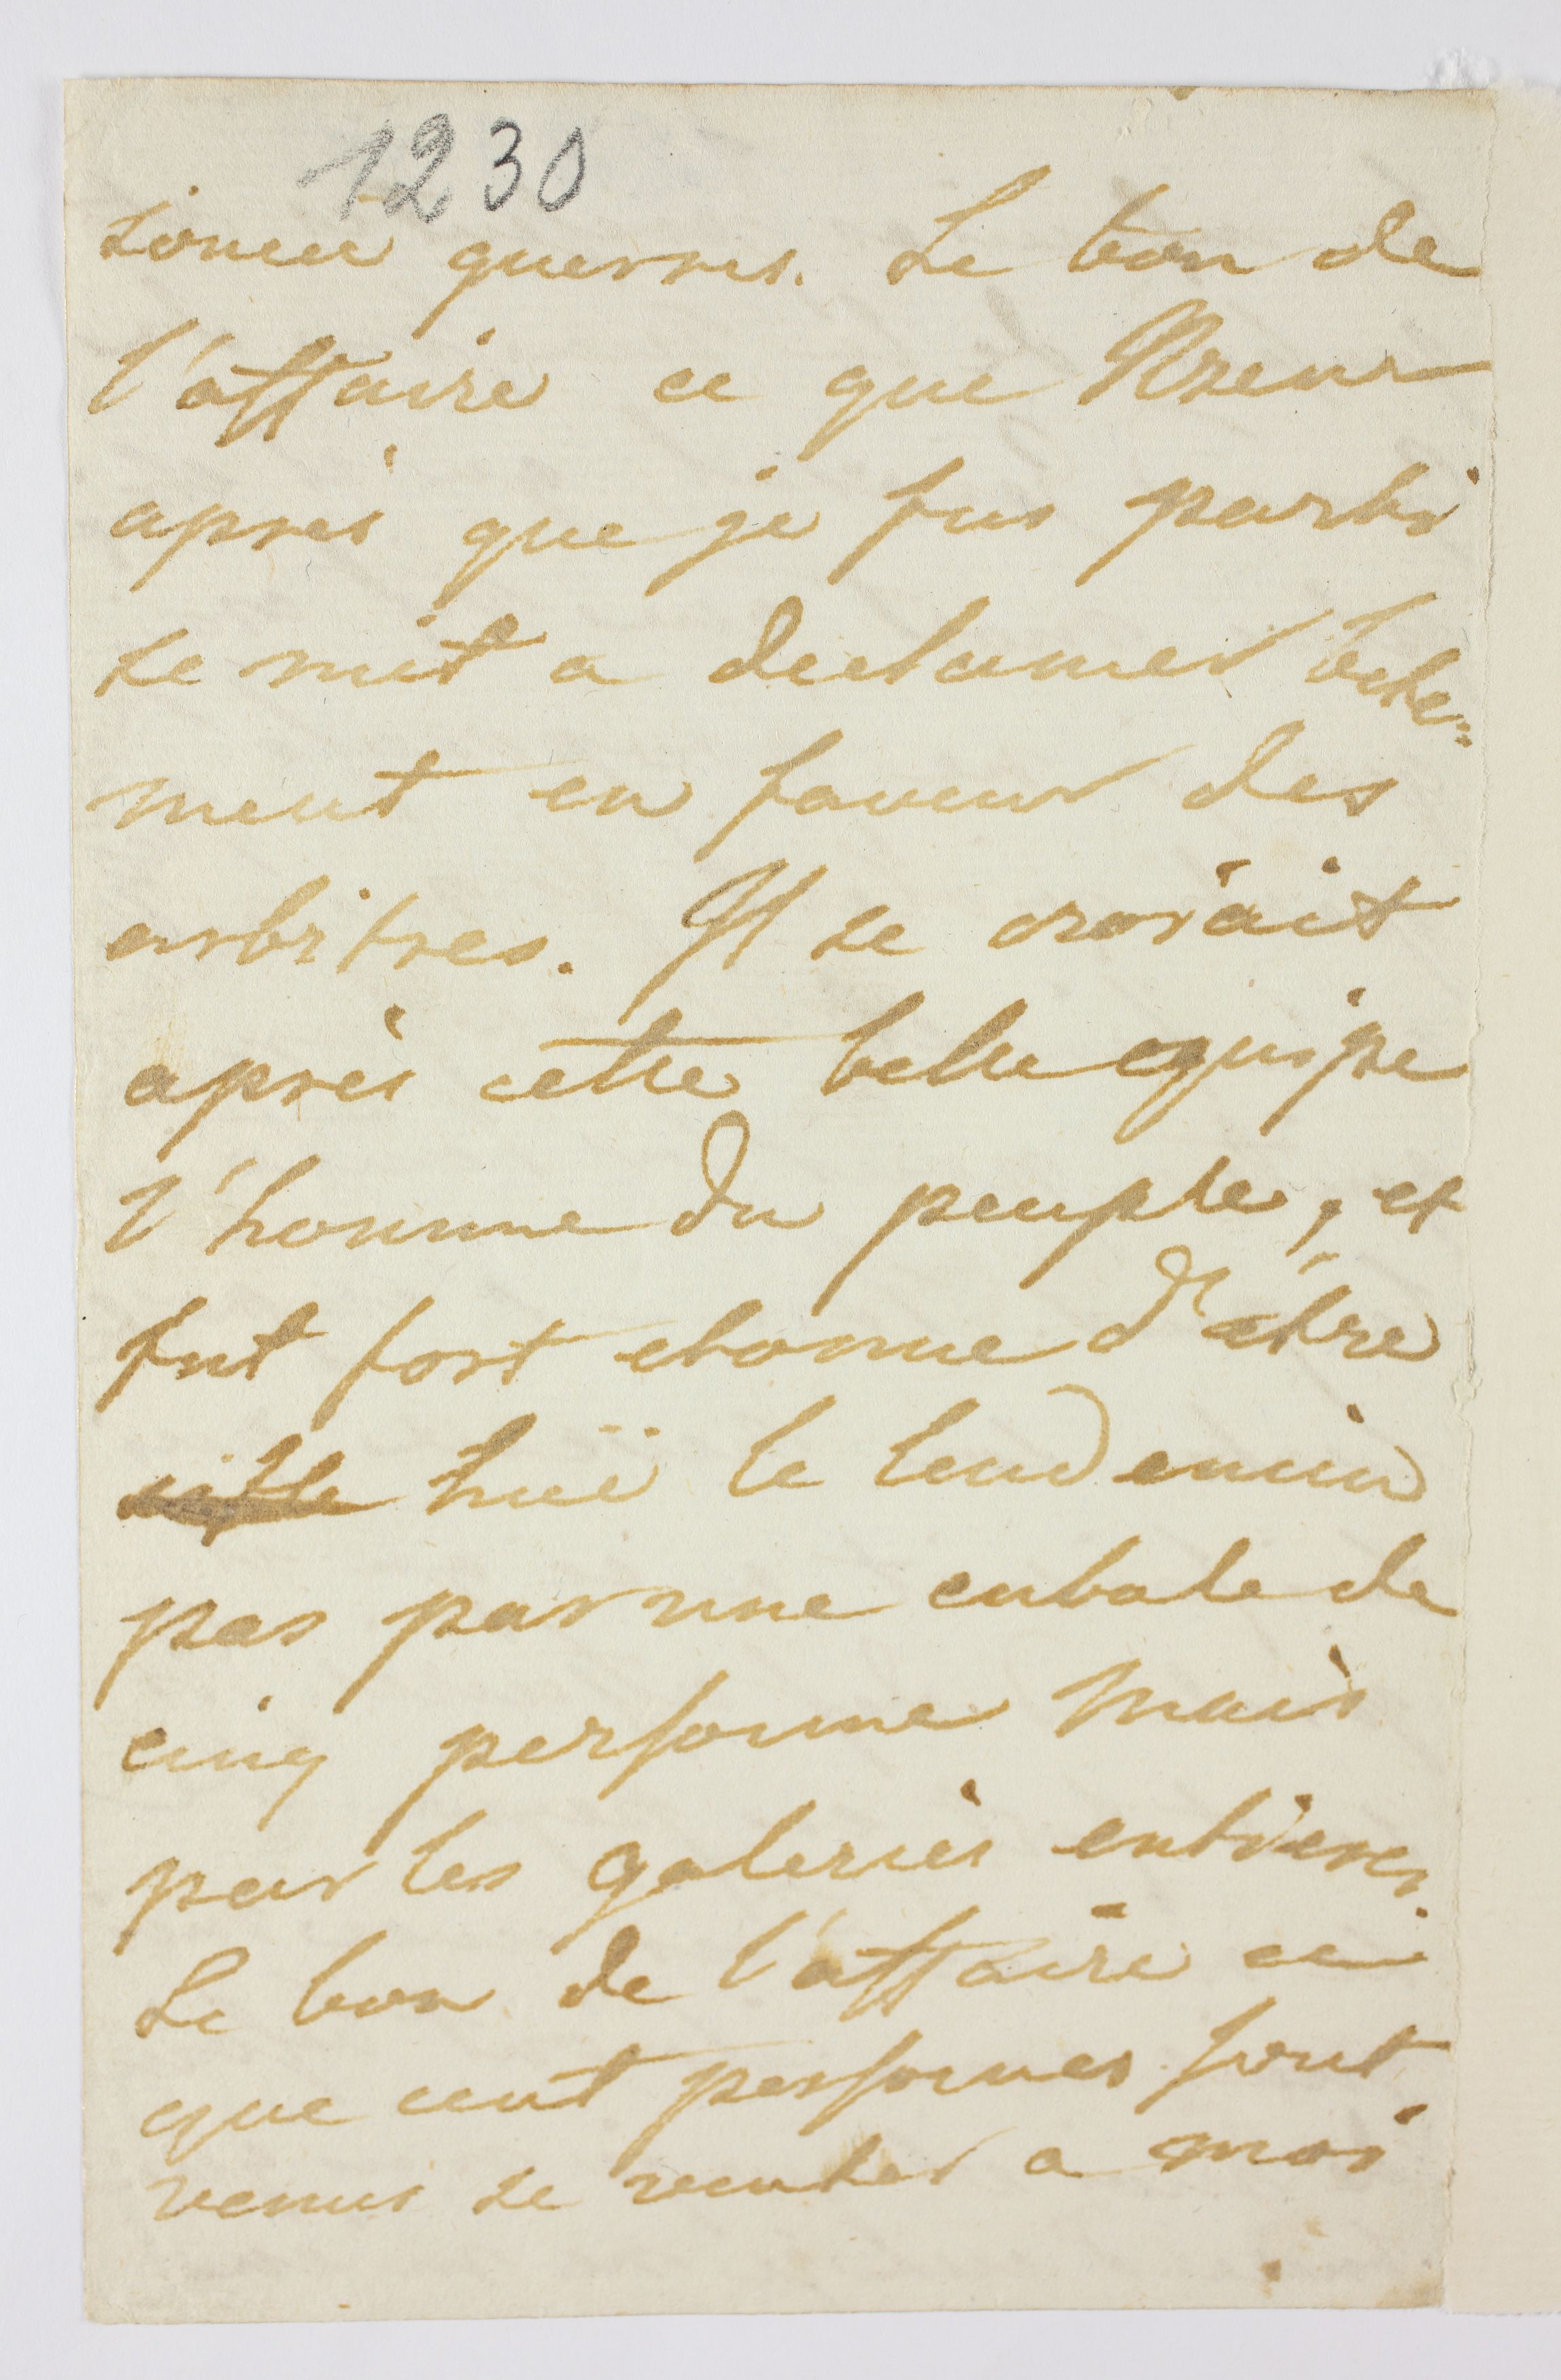 1230
soucie gueres. Le bon de
l'affaire ce que
après que je fus partis
se mit a declamer bete=
ment en faveur des
arbitres. Il se croiait
après cette belle equipe
l'homme du peuple, et
fut fort etonne d'etre
huë le lendemin
pas par une cabale de
cinq personne mais
par les galeries entieres.
Le bon de l'affaire ce
que cent personnes sont
venus se venter a moi